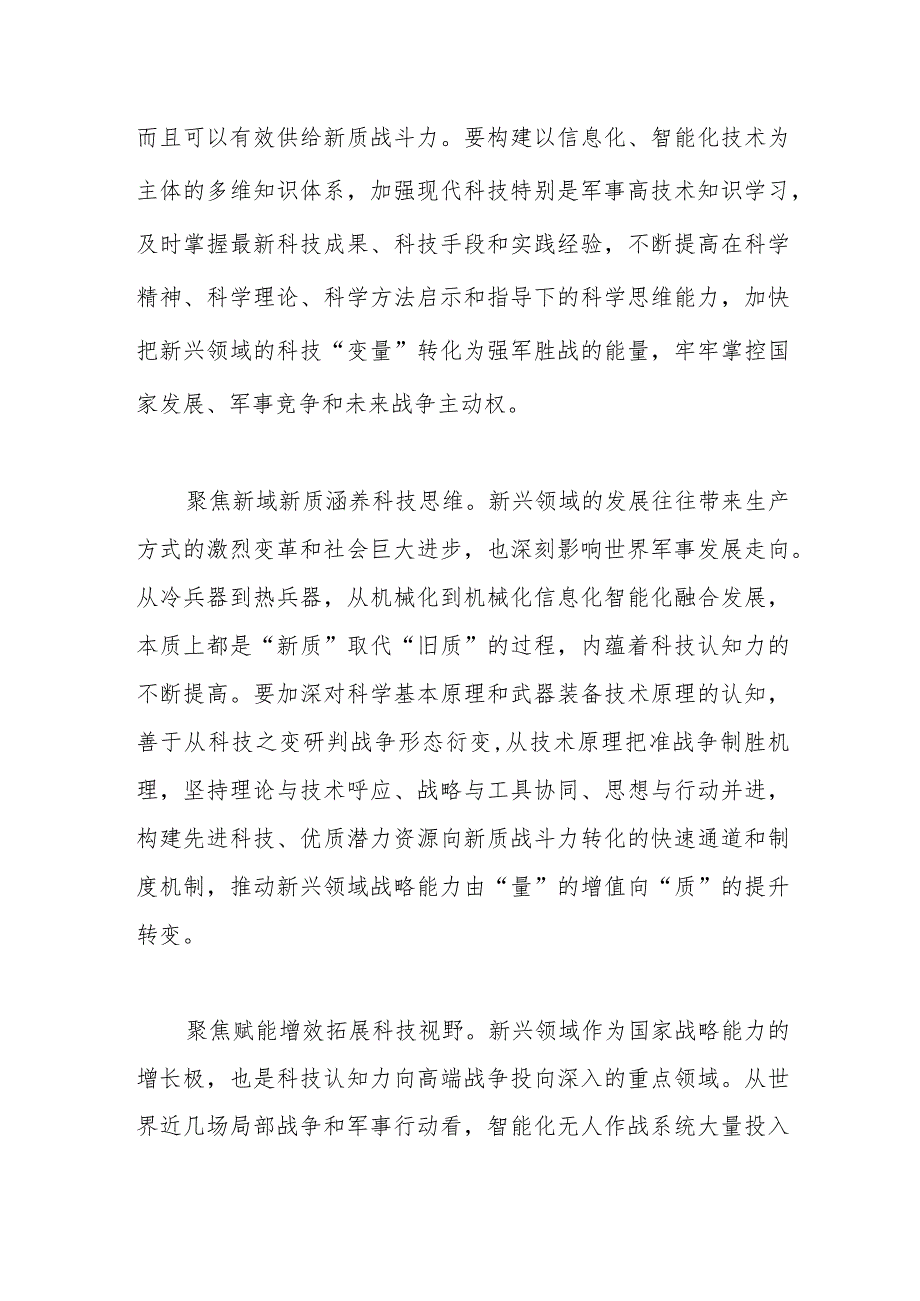 而且可以有效供给新质战斗力。要构建以信息化、智能化技术为
主体的多维知识体系，加强现代科技特别是军事高技术知识学习，
及时掌握最新科技成果、科技手段和实践经验，不断提高在科学
精神、科学理论、科学方法启示和指导下的科学思维能力，加快
把新兴领域的科技“变量”转化为强军胜战的能量，牢牢掌控国
家发展、军事竞争和未来战争主动权。
聚焦新域新质涵养科技思维。新兴领域的发展往往带来生产
方式的激烈变革和社会巨大进步，也深刻影响世界军事发展走向。
从冷兵器到热兵器，从机械化到机械化信息化智能化融合发展，
本质上都是“新质”取代“旧质”的过程，内蕴着科技认知力的
不断提高。要加深对科学基本原理和武器装备技术原理的认知，
善于从科技之变研判战争形态衍变,从技术原理把准战争制胜机
理，坚持理论与技术呼应、战略与工具协同、思想与行动并进，
构建先进科技、优质潜力资源向新质战斗力转化的快速通道和制
度机制，推动新兴领域战略能力由“量”的增值向“质”的提升
转变。
聚焦赋能增效拓展科技视野。新兴领域作为国家战略能力的
增长极，也是科技认知力向高端战争投向深入的重点领域。从世
界近几场局部战争和军事行动看，智能化无人作战系统大量投入